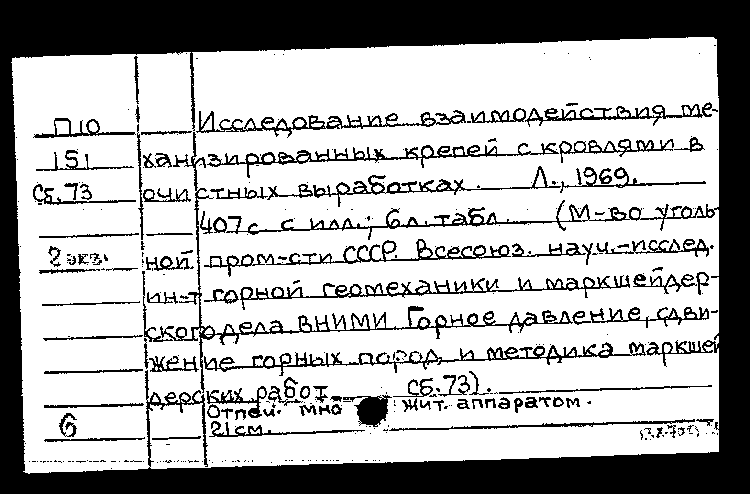 П10 Исследование взаимодействия ме-
151 ханизированных крепей с кровлями в
Сб.73 очистных выработках. Л., 1969.
407с. с илл.; 6л. табл. (М-во уголь-
2 экз. ной пром-сти СССР. Всесоюз. науч.-исслед.
ин-т горной геомеханики и маркшейдер-
ского дела ВНИМИ. Горное давление, сдви-
жение горных пород и методика маркшей
дерских работ. Сб.73).
Отпеч. мно жит. аппаратом.
б 21см.